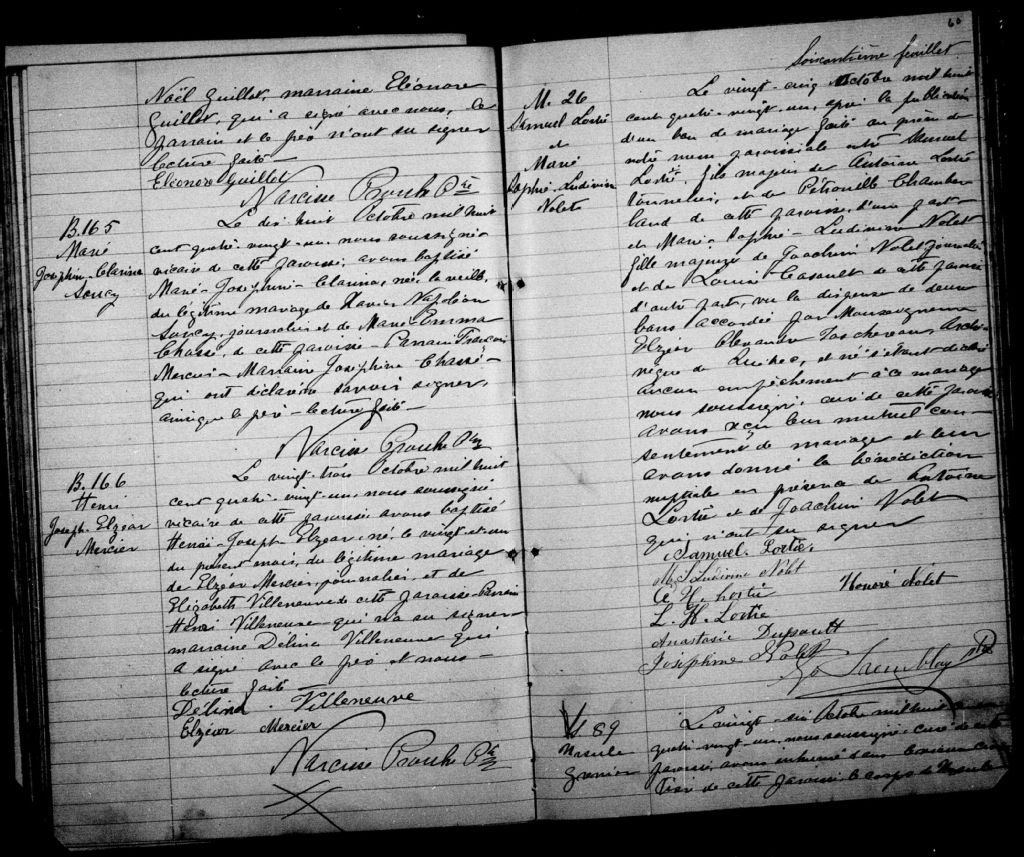 Noël Guillot, marraine Eléonore
Guillot, qui a signé avec nous, le
parrain et le père n'ont su signer
lecture faite —
Eléonore Guillot
Narcisse Proulx Ptre
B. 165
Marie
Joséphine-Clarina
Soucy
Le dix huit Octobre mil huit
cent quatre-vingt-un nous soussigné
vicaire de cette paroisse, avons baptisé
Marie-Joséphine-Clarina, née la veille,
du légitime mariage de Xavier Napoléon
Soucy, journalier et de Marie Emma
Chassé, de cette paroisse — Parrain François
Mercier — Marraine Joséphine Chassé —
qui ont déclaré savoir signer,
ainsi que le père — lecture faite —
Narcisse Proulx Ptre
B. 166
Henri
Joseph-Elzéar
Mercier
Le vingt-trois Octobre mil huit
cent quatre-vingt-un, nous soussigné
vicaire de cette paroisse avons baptisé
Henri-Joseph Elzéar, né, le vingt-et-un
du présent mois, du légitime mariage
de Elzéar Mercier, journalier, et de
Elizabeth Villeneuve de cette paroisse — Parrain
Henri Villeneuve qui n'a su signer
marraine Délina Villeneuve qui
a signé avec le père et nous —
lecture faite —
Délina Villeneuve
Elzéar Mercier
Narcisse Proulx Ptre
60
Soixantième feuillet
M. 26
Samuel Lortie
et
Marie
Sophie-Ludivine
Nolet
Le vingt-cinq Octobre mil huit
cent quatre-vingt-un, après la publication
d'un ban de mariage faite au prône de
notre messe paroissiale entre Samuel
Lortie, fils majeur de Antoine Lortie
tonnelier, et de Pétronille Chamber
land de cette paroisse, d'une part —
et Marie-Sophie-Ludivine Nolet
fille majeure de Joachim Nolet journalier
et de Louise Casault de cette paroisse
d'autre part, vu la dispense de deux
bans accordée par Monseigneur
Elzéar Alexandre Taschereau, Arche-
vêque de Québec, et ne s'étant découvert
aucun empêchement à ce mariage
nous soussigné, curé de cette paroisse
avons reçu leur mutuel con-
sentement de mariage et leur
avons donné la bénédiction
nuptiale en présence de Antoine
Lortie et de Joachim Nolet
qui n'ont su signer
Samuel Lortie
M. S. Ludivine Nolet
Honoré Nolet
H. Lortie
L. H. Lortie
Anastasie Dupault
Joséphine Nolet
Tremblay Ptre
S 89
Ursule
Grenier
Le vingt-six Octobre mil huit cent
quatre-vingt-un, nous soussigné, curé de cette
paroisse, avons inhumé dans le nouveau cime
tière de cette paroisse le corps de Ursule